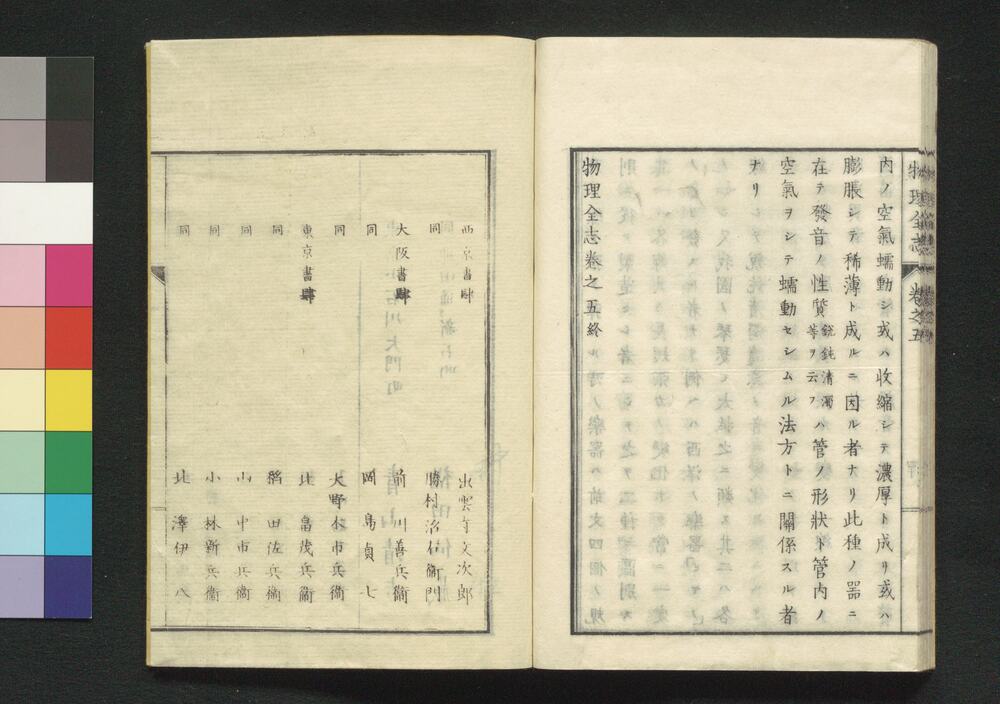 内ノ空氣蠕動シ或ハ收縮シテ濃厚ト成リ或ハ
膨脹シテ稀薄ト成ルニ因ル者ナリ此種ノ器ニ
在テ發音ノ性質鋭鈍清濁等ヲ云フハ管ノ形狀ト管内ノ
空氣ヲシテ蠕動セシムル法方トニ關係スル者
ナリ
物理全志卷之五終
物理全志 卷之五
西京書肆 出雲寺文次郎
同 勝村治右衞門
大阪書肆 前川善兵衞
同 岡島貞七
同 大野木市兵衞
東京書肆 北畠茂兵衞
同 稻田佐兵衞
同 山中市兵衞
同 小林新兵衞
同 北澤伊八